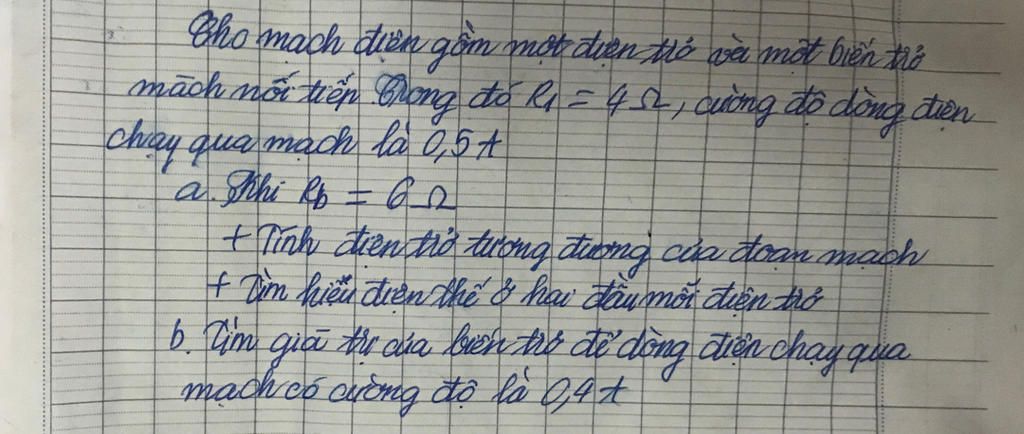 Cho mạch điện gồm một điện trở và một biến trở
mắch nối tiếp Trong đó R₁ = 4 Ω, cường độ dòng điện
chạy qua mạch là 0,5 A
a. Khi Rb = 6 Ω
+ Tính điện trở tương đương của đoạn mạch
+ Tìm hiệu điện thế ở hai đầu mỗi điện trở
b. Tìm giá trị của biến trở để dòng điện chạy qua
mạch có cường độ là 0,4 A